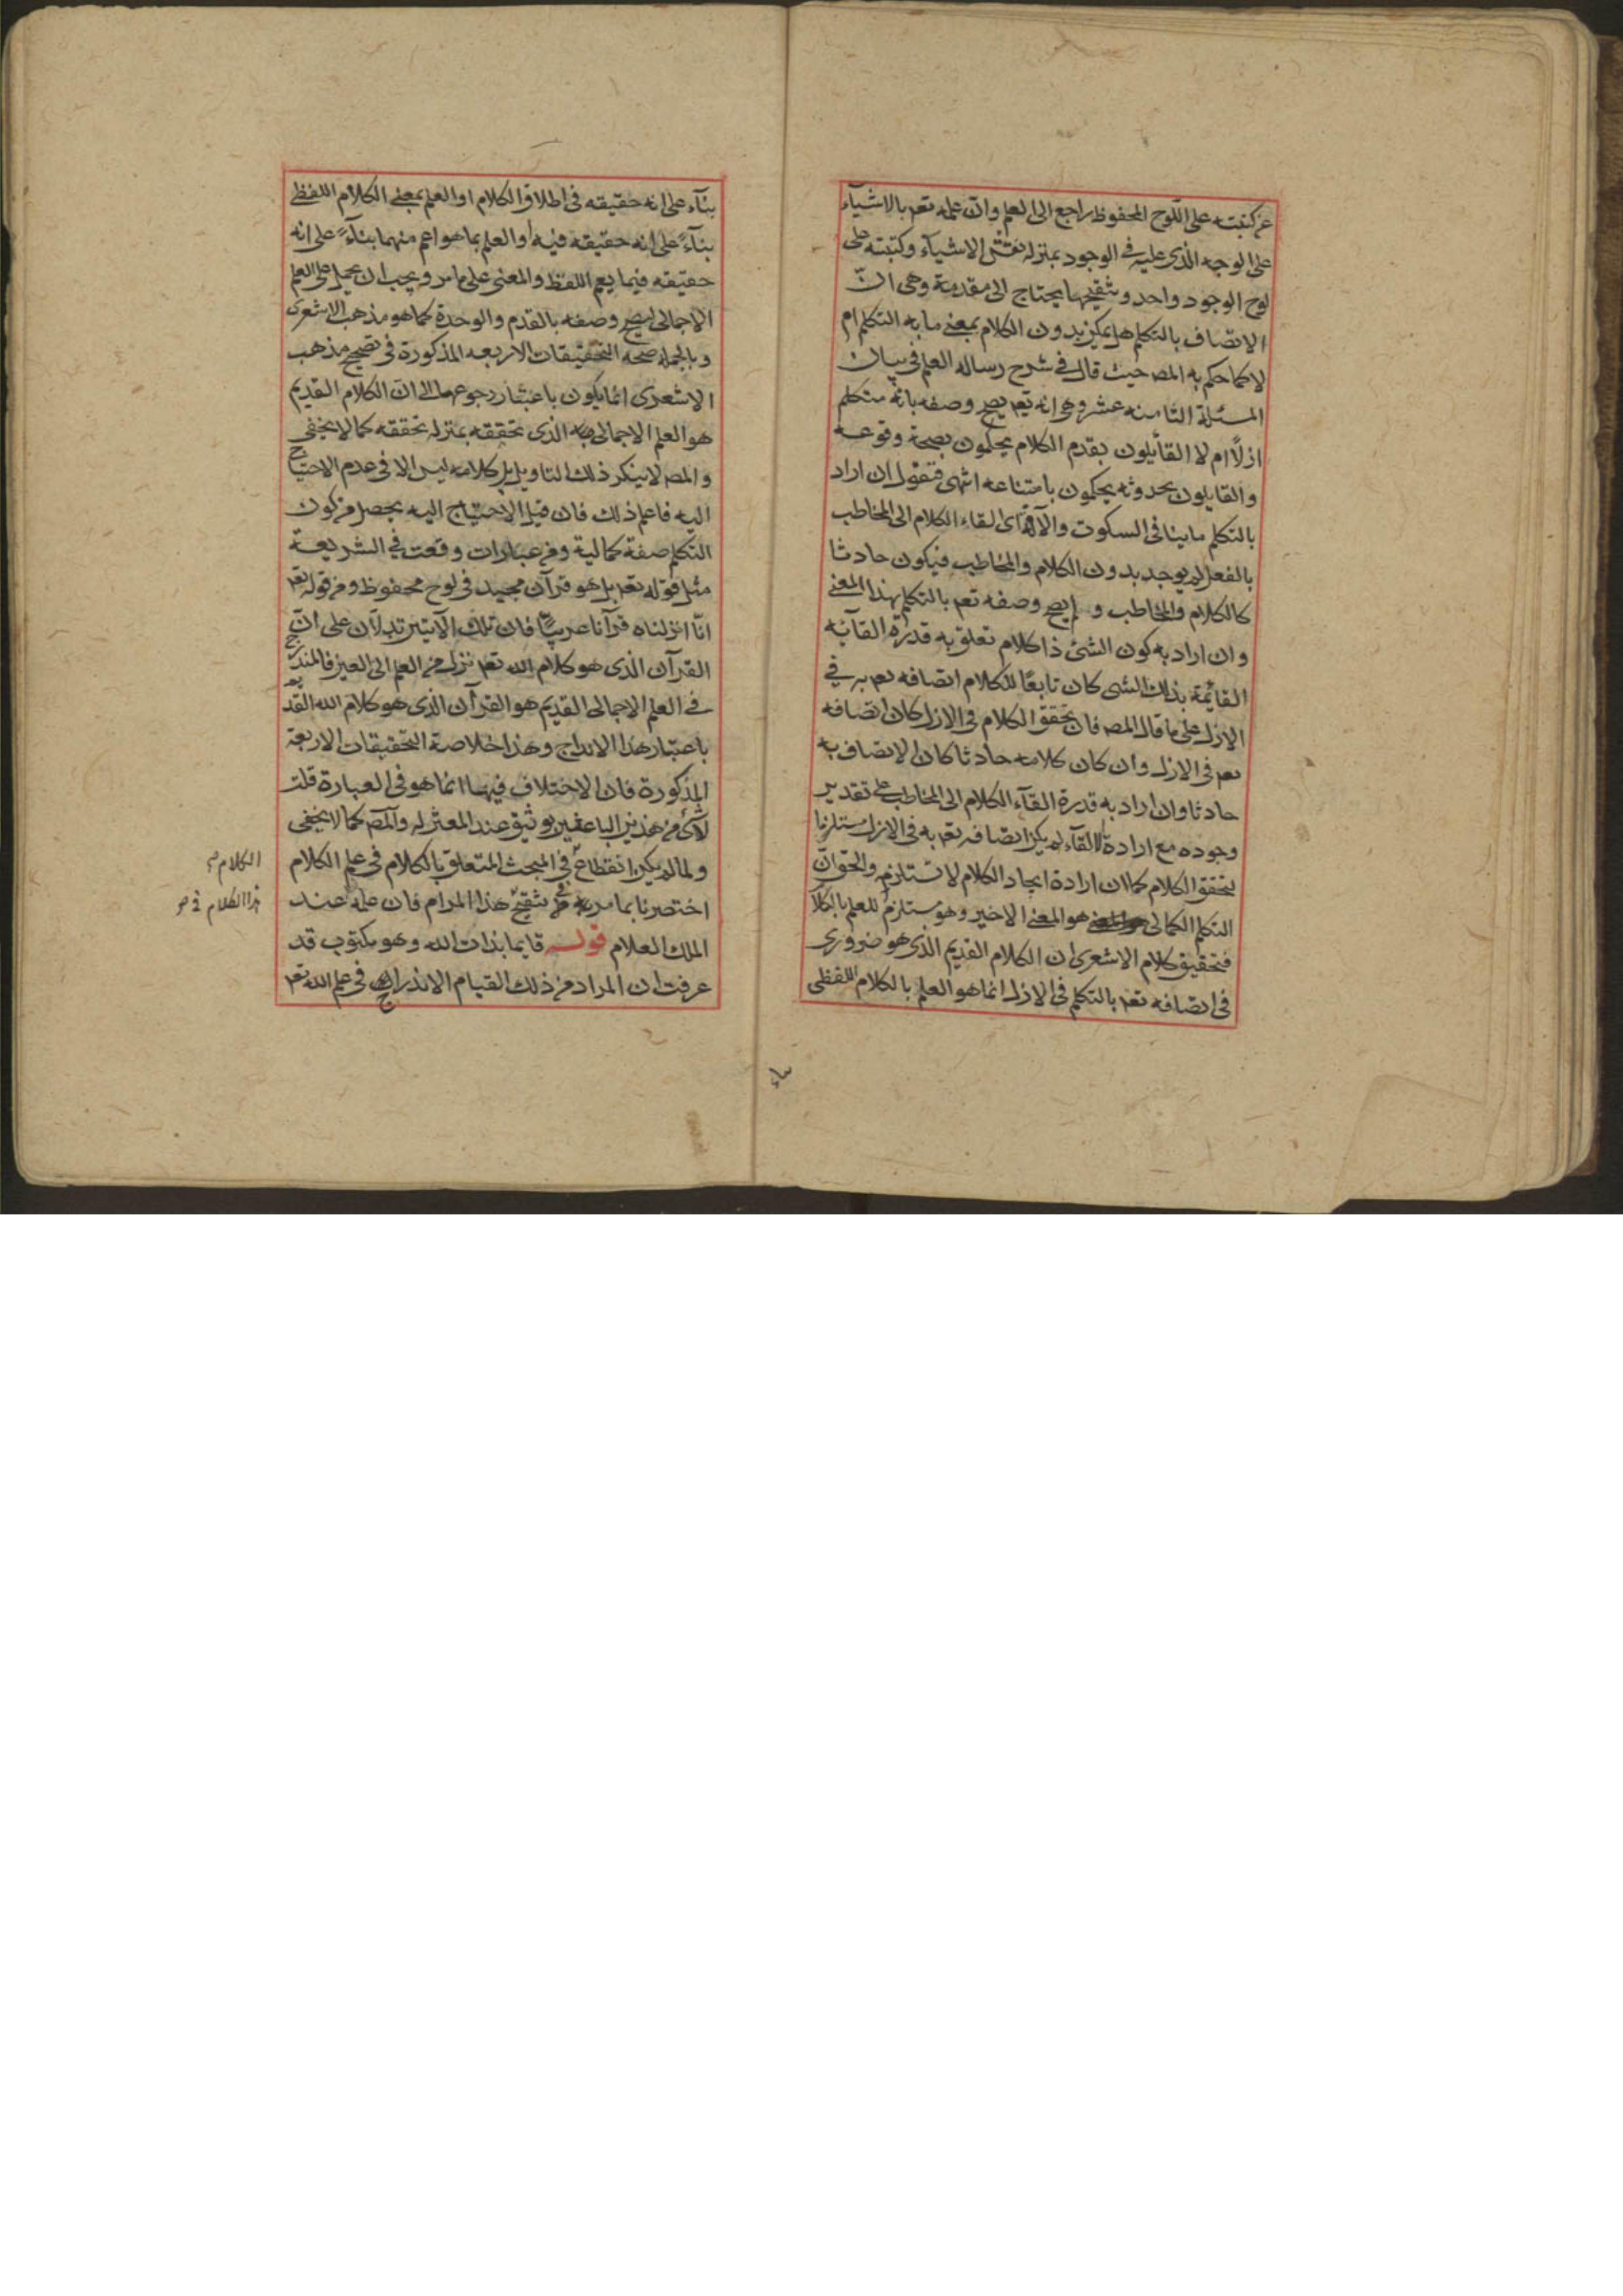 عن كتبته على اللوح المحفوظ راجع الى العلم وان علمه تعم بالاشيآء
على الوجه الذى عليه فى الوجود بمنزله نقش الاشيآء وكتبته على
لوح الوجود واحد وتنقيحها يحتاج الى مقدمة وهى انّ
الاتصاف بالتكلم هل يمكن بدون الكلام بمعنى ما به التكلم ام
لا كما حكم به المصـ حيث قال فى شرح رساله العلم فى بيان
المسئلة الثامنه عشر وهى انه تعم يصح وصفه بانه متكلم
ازلًا ام لا القائلون بقدم الكلام يحكمون بصحة وقوعه
والقايلون بحدوثه يحكمون بامتناعه انتهى فنقول ان اراد
بالتكلم ما ينافى السكوت والآفة اى القاء الكلام الى المخاطب
بالفعل لم يوجد بدون الكلام والمخاطب فيكون حادثا
كالكلام والمخاطب و لم يصح وصفه تعم بالتكلم بهذا المعنى
وان اراد به كون الشئ ذا كلام تعلق به قدرة القائه
القائمة بذلك الشى كان تابعًا للكلام اتصافه تعم به فى
الازل على ما قال المصـ فان تحقق الكلام فى الازل كان اتصافه
تعم فى الازل وان كان كلامه حادثا كان الاتصاف به
حادثا وان اراد به قدرة القآء الكلام الى المخاطب على تقدير
وجوده مع ارادة الالقآء لم يكن اتصافه تعم به فى الازل مستلزما
لتحقق الكلام كما ان ارادة ايجاد الكلام لا تستلزمه والحق ان
التكلم الكمالى هو المعنى الاخير وهو مستلزم للعلم بالكلام
فتحقيق كلام الاشعرى ان الكلام القديم الذى هو ضرورى
فى اتصافه تعم بالتكلم فى الازل انما هو العلم بالكلام اللفظى
بنآء على انه حقيقه فى اطلاق الكلام او العلم بمعنى الكلام اللفظى
بنآءً على انه حقيقه فيه او العلم بما هو اعم منهما بنآءً على انه
حقيقه فيما يعم اللفظ والمعنى على ما مر ويجب ان يحمل على العلم
الاجمالى ليصح وصفه بالقدم والوحدة كما هو مذهب الاشعرى
وبالجمله صحه التحقيقات الاربعه المذكورة فى تصحيح مذهب
الاشعرى انما يكون باعتبار رجوعها الى ان الكلام القديم
هو العلم الاجمالى به الذى تحققه بمنزله تحققه كما لا يخفى
والمصـ لا ينكر ذلك التاويل بل كلامه ليس الا فى عدم الاحتياج
اليه فاعلم ذلك فان قيل الاحتياج اليه يحصل من كون
التكلم صفة كمالية ومن عبارات وقعت فى الشريعة
مثل قوله تعم بل هو قرآن مجيد فى لوح محفوظ ومن قوله تعم
انّا انزلناه قرآنا عربيًّا فان تلك الآيتين تدلان على ان
القرآن الذى هو كلام الله تعم نزل من العلم الى العين فالمندرج
فى العلم الاجمالى القديم هو القرآن الذى هو كلام الله القديم
باعتبار هذا الاندراج وهذا خلاصة التحقيقات الاربعة
المذكورة فان الاختلاف فيها انما هو فى العبارة قلت
لا شئ من هذين الباعثين بوثيق عند المعتزله والمصـ كما لا يخفى
ولما لم يكن انقطاع فى المبحث المتعلق بالكلام فى علم الكلام
اختصرنا بما مر تنقيح هذا المرام فان علمه عند
الملك العلام قوله قايما بذات الله وهو مكتوب قد
عرفت ان المراد من ذلك القيام الاندراج فى علم الله تعم
الكلام
هذا الكلام فى